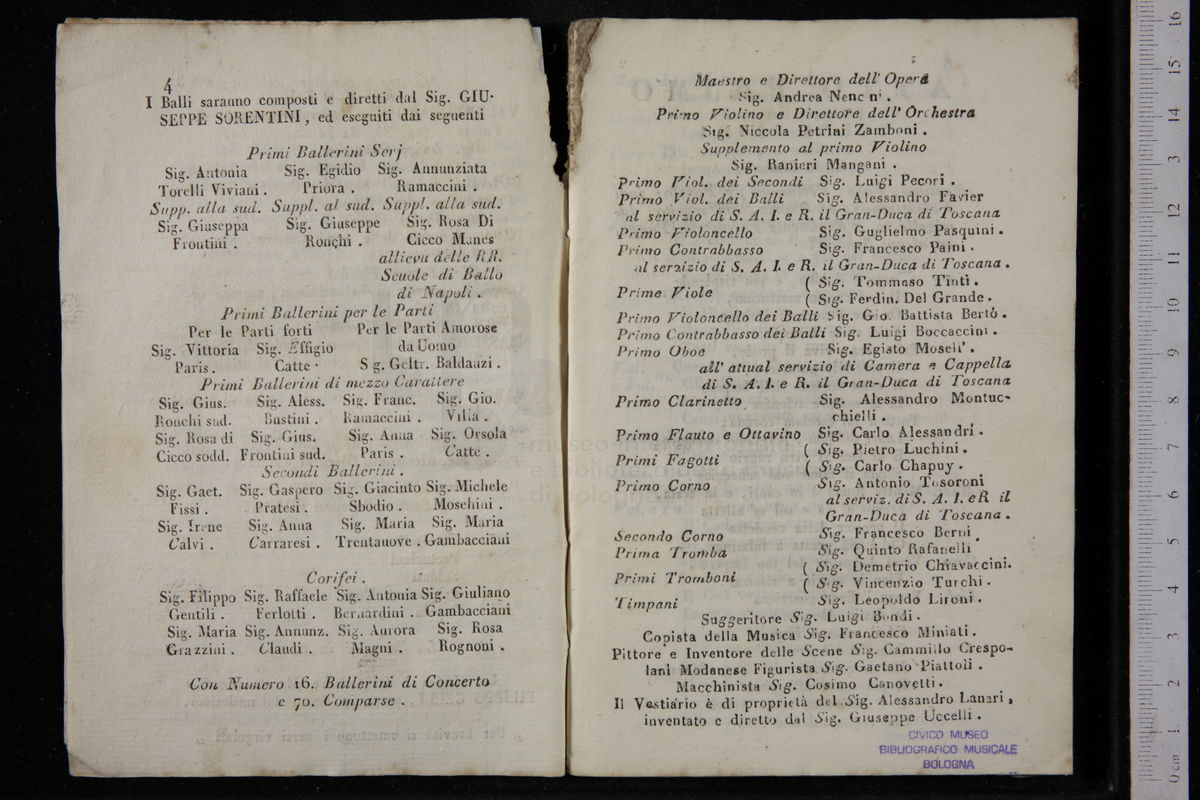 4
I Balli saranno composti e diretti dal Sig. GIU-
SEPPE SORENTINI, ed eseguiti dai seguenti
Primi Ballerini Serj
Sig. Antonia Sig. Egidio Sig. Annunziata
Torelli Viviani. Priora. Ramaccini.
Supp. alla sud. Suppl. al sud. Suppl. alla sud.
Sig. Giuseppa Sig. Giuseppe Sig. Rosa Di
Frontini. Ronchi. Cicco Manes
allieva delle RR.
Scuole di Ballo
di Napoli.
Primi Ballerini per le Parti
Per le Parti forti Per le Parti Amorose
Sig. Vittoria Sig. Effigio da Uomo
Paris. Catte. Sig. Geltr. Baldanzi.
Primi Ballerini di mezzo Carattere
Sig. Gius. Sig. Aless. Sig. Franc. Sig. Gio.
Ronchi sud. Bustini. Ramaccini. Villa.
Sig. Rosa di Sig. Gius. Sig. Anna Sig. Orsola
Cicco sodd. Frontini sud. Paris. Catte.
Secondi Ballerini.
Sig. Gaet. Sig. Gaspero Sig. Giacinto Sig. Michele
Fissi. Pratesi. Sbodio. Moschini.
Sig. Irene Sig. Anna Sig. Maria Sig. Maria
Calvi. Carraresi. Trentanove. Gambacciani
Corifei.
Sig. Filippo Sig. Raffaele Sig. Antonia Sig. Giuliano
Gentili. Ferlotti. Bernardini. Gambacciani
Sig. Maria Sig. Annunz. Sig. Aurora Sig. Rosa
Grazzini. Claudi. Magni. Rognoni.
Con Numero 16. Ballerini di Concerto
e 70. Comparse.
5
Maestro e Direttore dell' Opera
Sig. Andrea Nencini.
Primo Violino e Direttore dell' Orchestra
Sig. Niccola Petrini Zamboni.
Supplemento al primo Violino
Sig. Ranieri Mangani.
Primo Viol. dei Secondi Sig. Luigi Pecori.
Primo Viol. dei Balli Sig. Alessandro Favier
al servizio di S. A. I. e R. il Gran-Duca di Toscana
Primo Violoncello Sig. Guglielmo Pasquini.
Primo Contrabbasso Sig. Francesco Paini.
al servizio di S. A. I. e R. il Gran-Duca di Toscana.
Prime Viole ( Sig. Tommaso Tinti.
( Sig. Ferdin. Del Grande.
Primo Violoncello dei Balli Sig. Gio. Battista Bertò.
Primo Contrabbasso dei Balli Sig. Luigi Boccaccini.
Primo Oboe Sig. Egisto Mosell'.
all' attual servizio di Camera e Cappella
di S. A. I. e R. il Gran-Duca di Toscana
Primo Clarinetto Sig. Alessandro Montuc-
chielli.
Primo Flauto e Ottavino Sig. Carlo Alessandri.
Primi Fagotti ( Sig. Pietro Luchini.
( Sig. Carlo Chapuy.
Primo Corno Sig. Antonio Tosoroni
al serviz. di S. A. I. e R il
Gran-Duca di Toscana.
Secondo Corno Sig. Francesco Berni,
Prima Tromba Sig. Quinto Rafanelli
Primi Tromboni ( Sig. Demetrio Chiavaccini.
( Sig. Vincenzio Turchi.
Timpani Sig. Leopoldo Lironi.
Suggeritore Sig. Luigi Bondi.
Copista della Musica Sig. Francesco Miniati.
Pittore e Inventore delle Scene Sig. Cammillo Crespo-
lani Modanese Figurista Sig. Gaetano Piattoli.
Macchinista Sig. Cosimo Canovetti.
Il Vestiario è di proprietà del Sig. Alessandro Lanari,
inventato e diretto dal Sig. Giuseppe Uccelli.
CIVICO MUSEO
BIBLIOGRAFICO MUSICALE
BOLOGNA